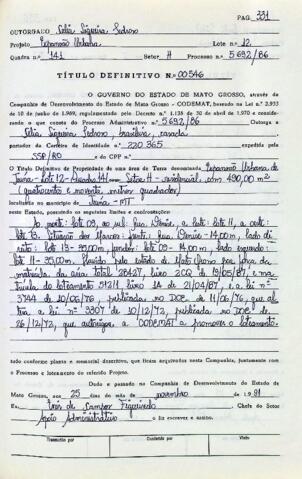 PAG. 331
OUTORGADO Célia Siqueira Pedroso
Projeto Expansão Urbana Lote n.º 12
Quadra n.º 141 Setor H Processo n.º 5692/86
TÍTULO DEFINITIVO N.º 00546
O GOVERNO DO ESTADO DE MATO GROSSO, através da
Companhia de Desenvolvimento do Estado de Mato Grosso - CODEMAT, baseado na Lei n.º
de 10 de junho de 1969, regulamentada pelo Decreto n.º 1.138 de 30 de abril de 1970 e considerando
o que consta do Processo Administrativo n.º 5.692/86 Outorga a
Célia Siqueira Pedroso, brasileira, casada
portador da Carteira de Identidade n.º 220.365 expedida pela
SSP/RO e do CPF n.º
O Título Definitivo de Propriedade de uma área de Terra denominada Expansão Urbana de
Juína - Lote 12 - Quadra 141 - Setor H - residencial, com 490,00 m²
(quatrocentos e noventa metros quadrados)
localizada no município de Juína - MT
neste Estado, possuindo os seguintes limites e confrontações:
lote 11, a oeste:
lote 13. frente: 14,00m, lado di
reito: lote 13 - 35,00m, fundos: lote 09 - 14,00m, lado esquerdo:
lote 11 - 35,00m. pelo estado de Mato Grosso por força da
matrícula da área total 28427, livro 2CQ de 19/05/87, e ma
trícula do loteamento 51211 livro de 21/04/87, e a lei nº
3744 de 10/06/76, publicada no DOE de 11/06/76, que al
tera a lei nº 3307 de 10/12/72, publicada no DOE de
26/12/72, que autoriza a CODEMAT a promover o loteamento.
tudo conforme planta e memorial descritivo, que ficam arquivados nesta Companhia, juntamente com
o Processo e loteamento do referido Projeto.
Dado e passado na Companhia de Desenvolvimento do Estado de
Mato Grosso, aos 25 dias do mês de novembro de 1991
Eu, de Campos Figueiredo Chefe do Setor
Apoio Administrativo o fiz escrever e assino.
Transcrito por Conferido por Visto